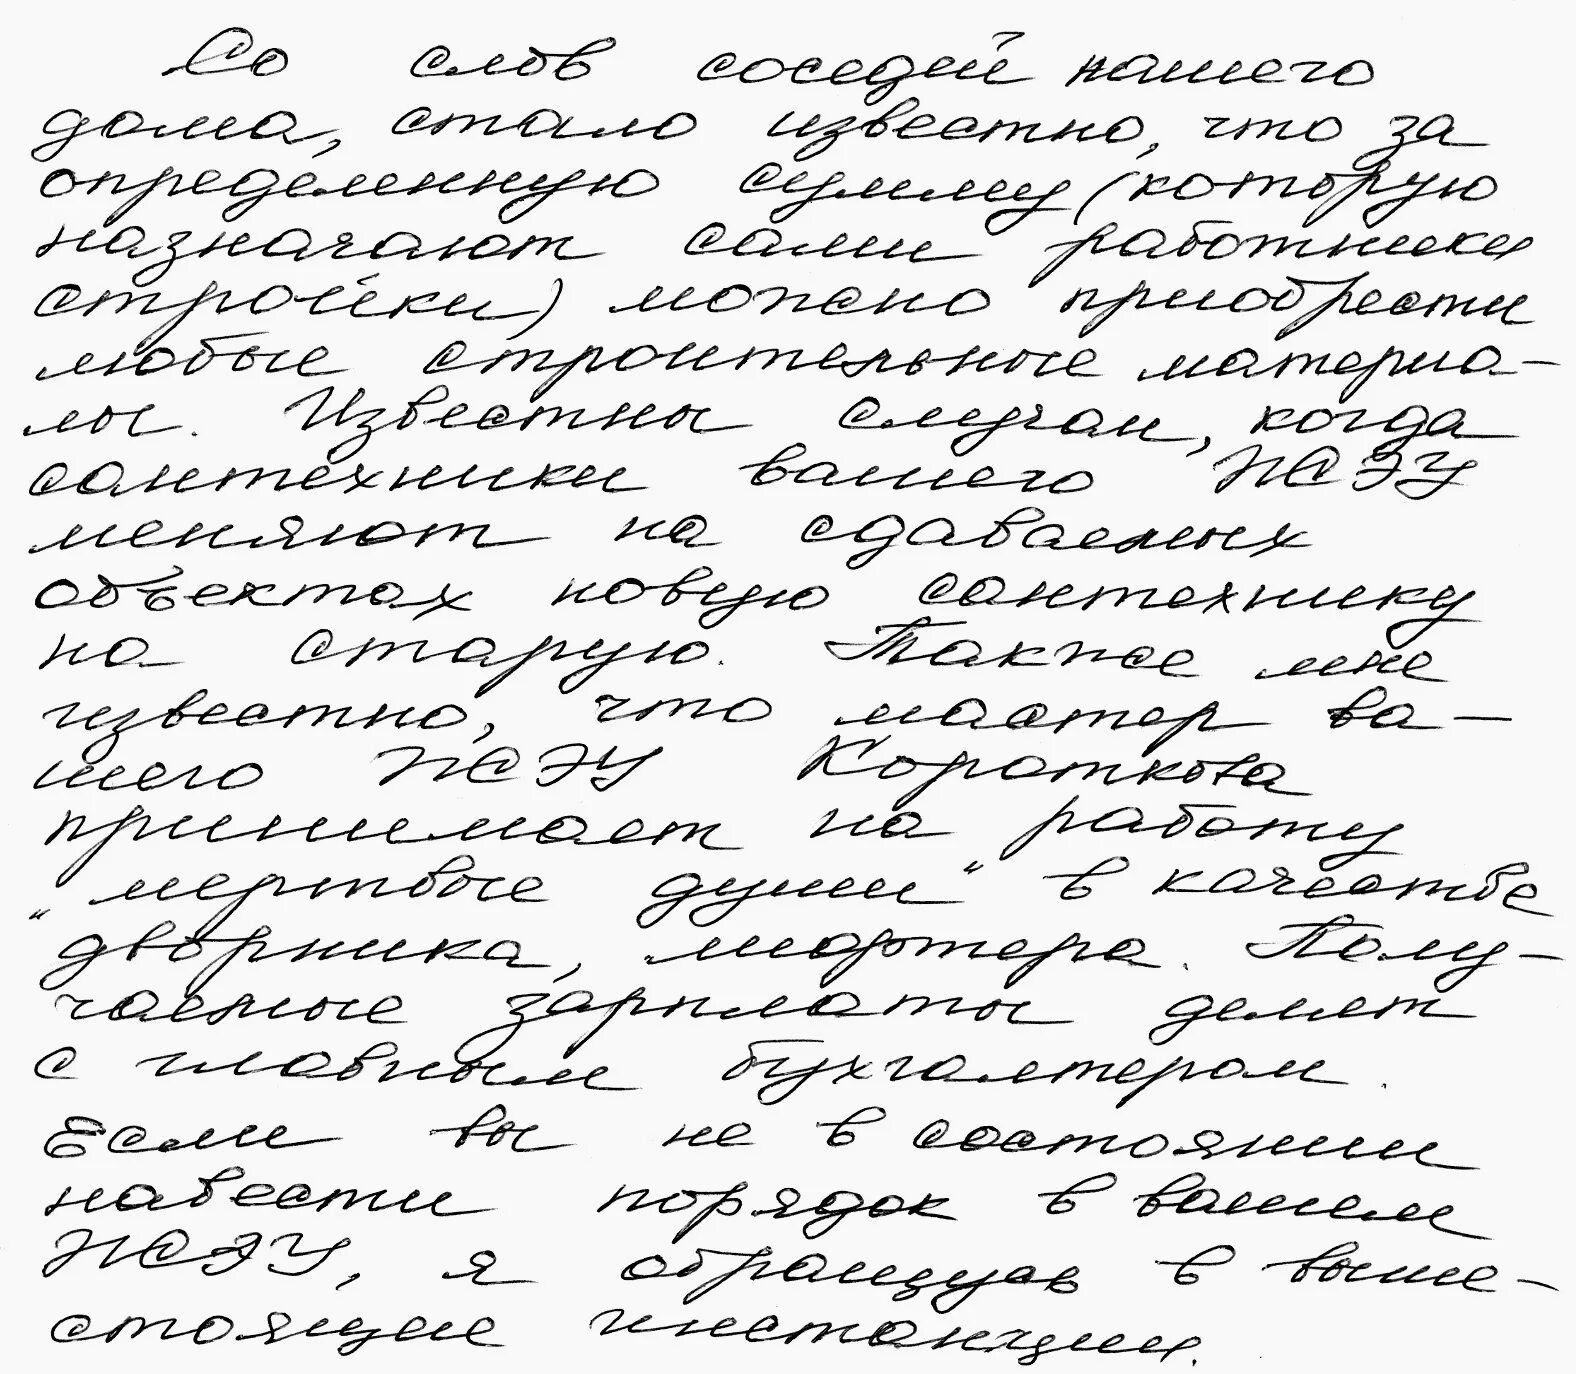 Со слов соседей нашего
дома, стало известно, что за
определенную сумму (которую
назначают сами работники
стройки) можно приобрести
любые строительные материа-
лы. Известны случаи, когда
сантехники вашего ЖЭУ
меняют на сдаваемых
объектах новую сантехнику
на старую. Также мне
известно, что мастер ва-
шего ЖЭУ Короткова
принимает на работу
"мертвые души" в качестве
"дворника, лифтера. Полу-
чаемые зарплаты делет
с главным бухгалтером.
Если вы не в состоянии
навести порядок в вашем
ЖЭУ, я обращусь в выше-
стоящие инстанции.